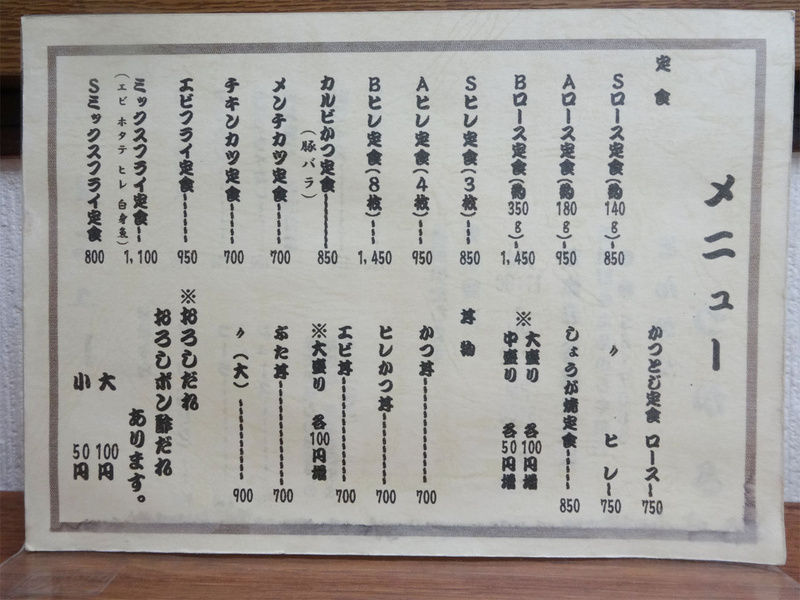 メニュー
定食
Sロース定食(約140g) 850
Aロース定食(約180g) 950
Bロース定食(約350g) 1,450
Sヒレ定食(3枚) 850
Aヒレ定食(4枚) 950
Bヒレ定食(8枚) 1,450
カルビかつ定食 850
(豚バラ)
メンチカツ定食 700
チキンカツ定食 700
エビフライ定食 950
ミックスフライ定食 1,100
(エビ ホタテ ヒレ 白身魚)
Sミックスフライ定食 800
かつとじ定食 ロース 750
〃 ヒレ 750
しょうが焼定食 850
※大盛り 各100円増
中盛り 各50円増
丼物
かつ丼 700
ヒレかつ丼 700
エビ丼 700
※大盛り 各100円増
ぶた丼 700
〃(大) 900
※おろしだれ
おろしポン酢だれ
あります。
大 100円
小 50円